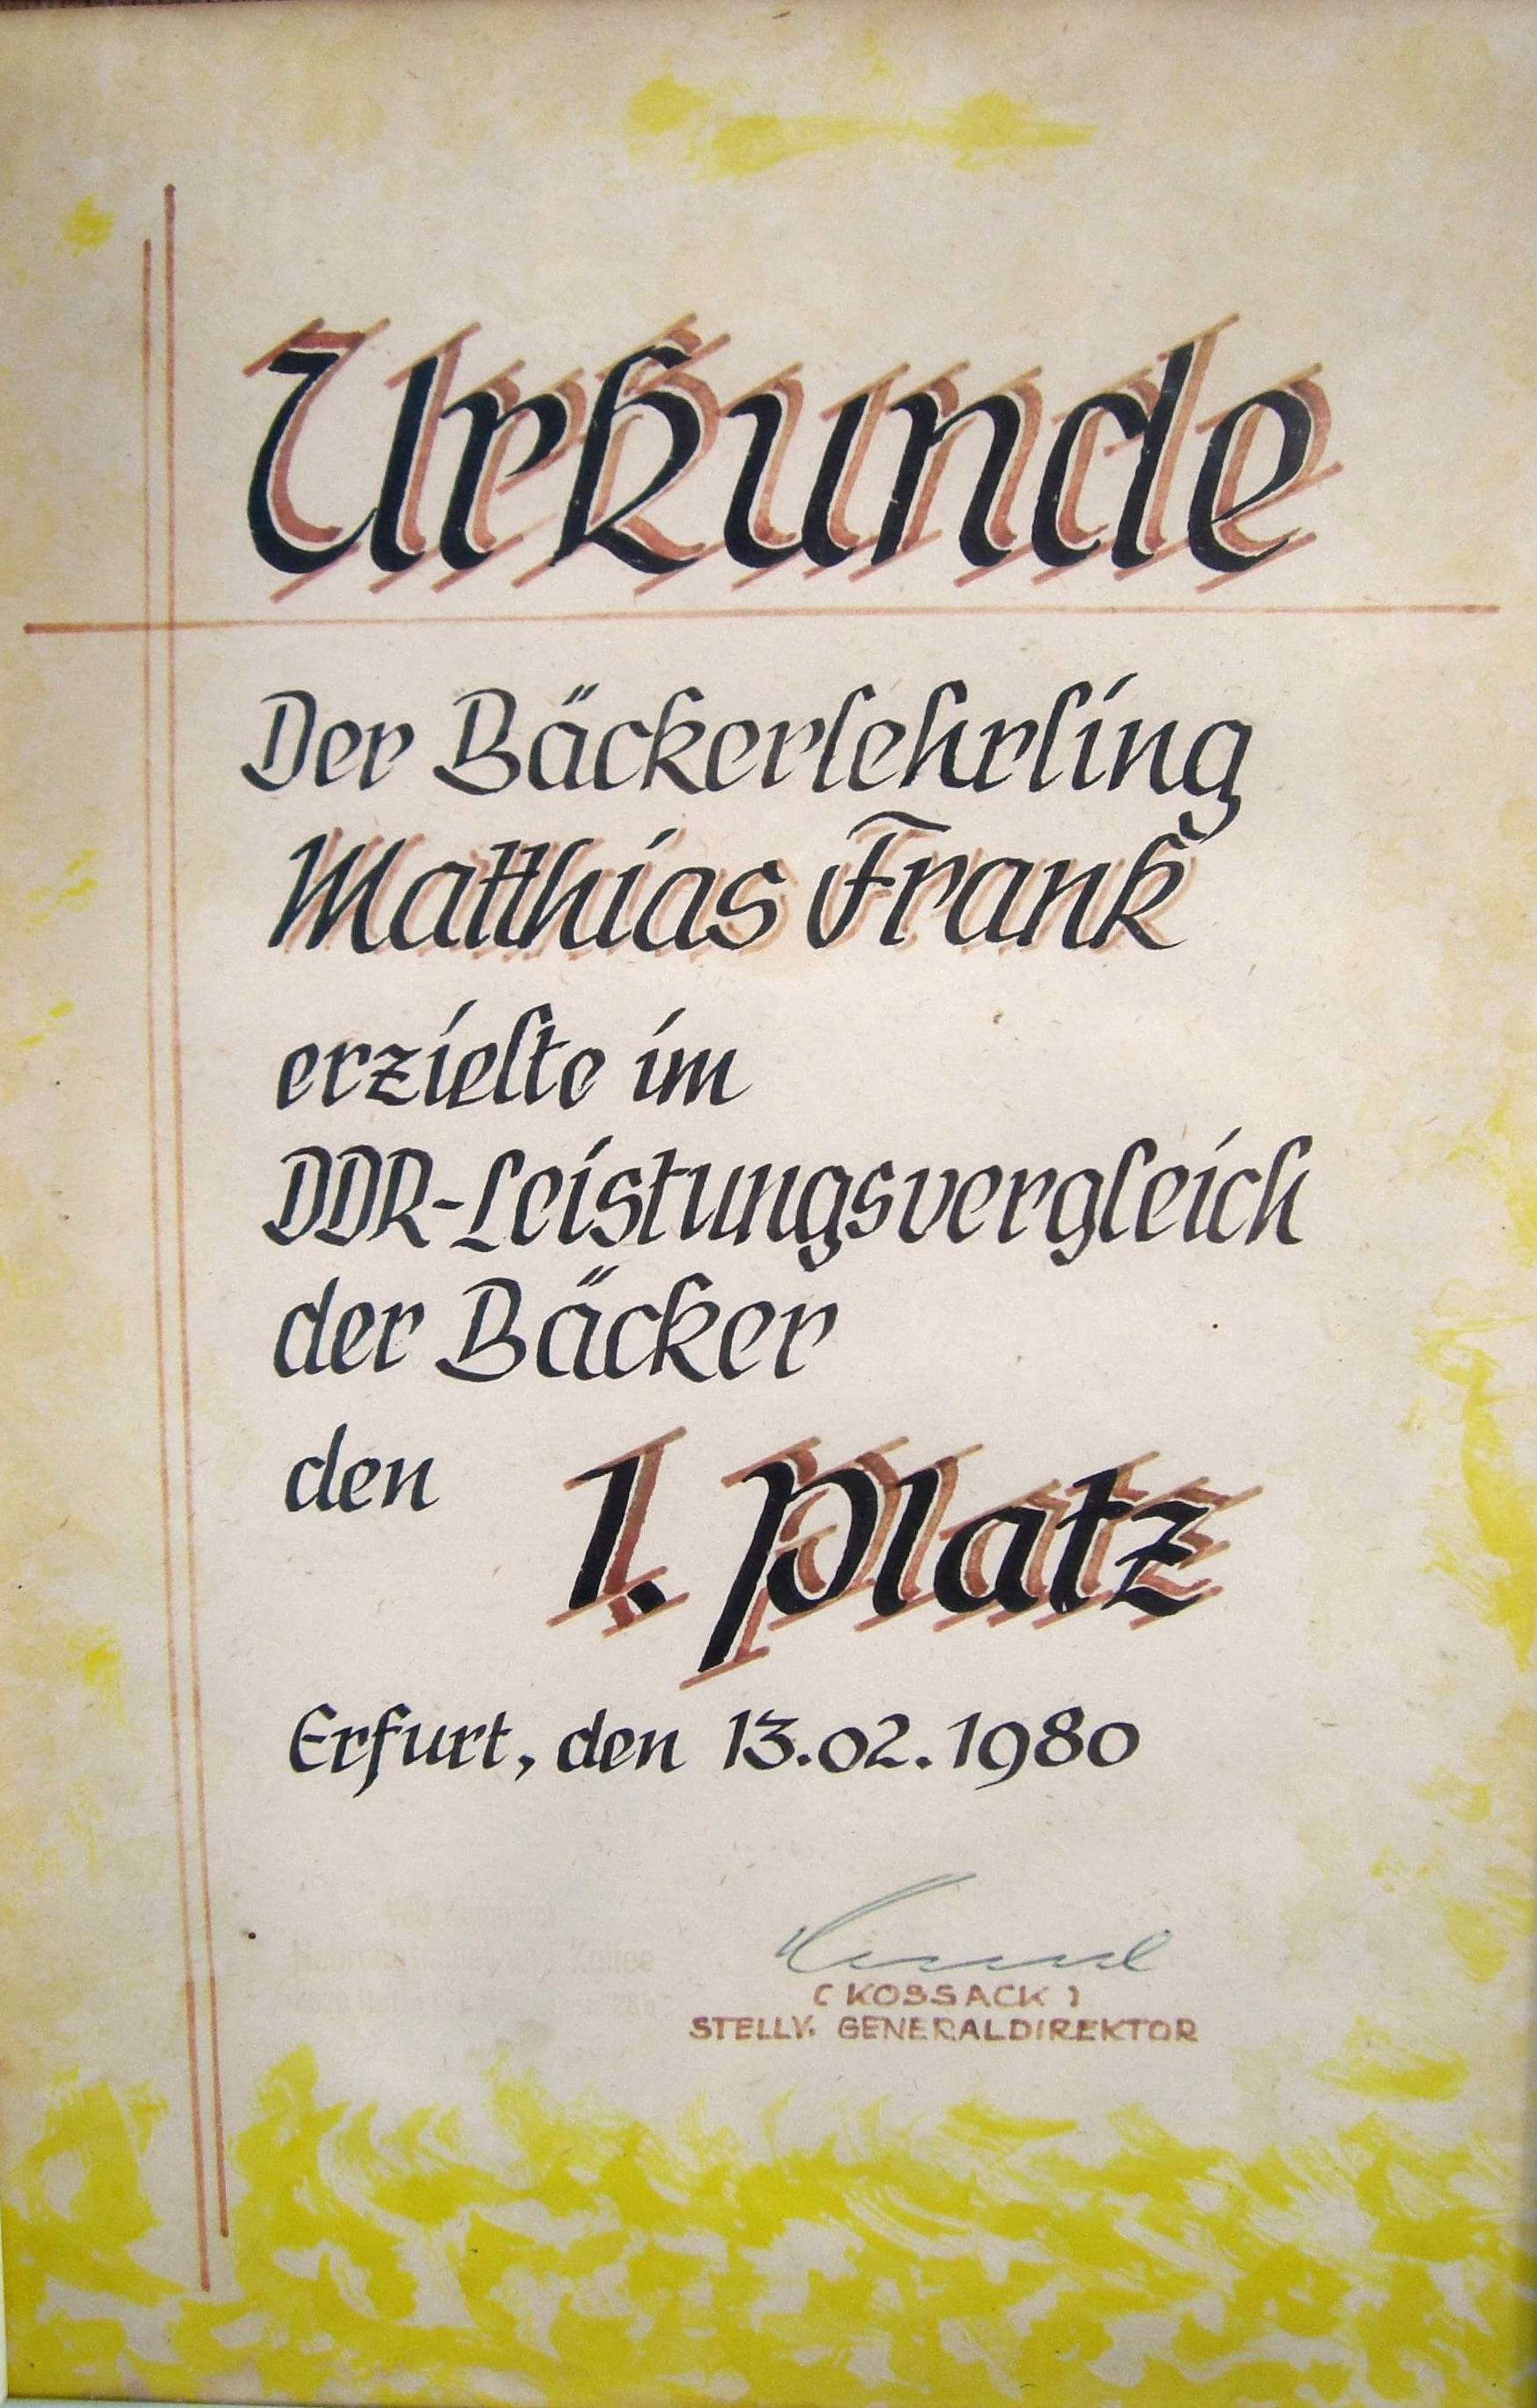 Urkunde
Der Bäckerlehrling
Matthias Frank
erzielte im
DDR-Leistungsvergleich
der Bäcker
den 1. Platz
Erfurt, den 13.02.1980
(KOSSACK)
STELLV. GENERALDIREKTOR